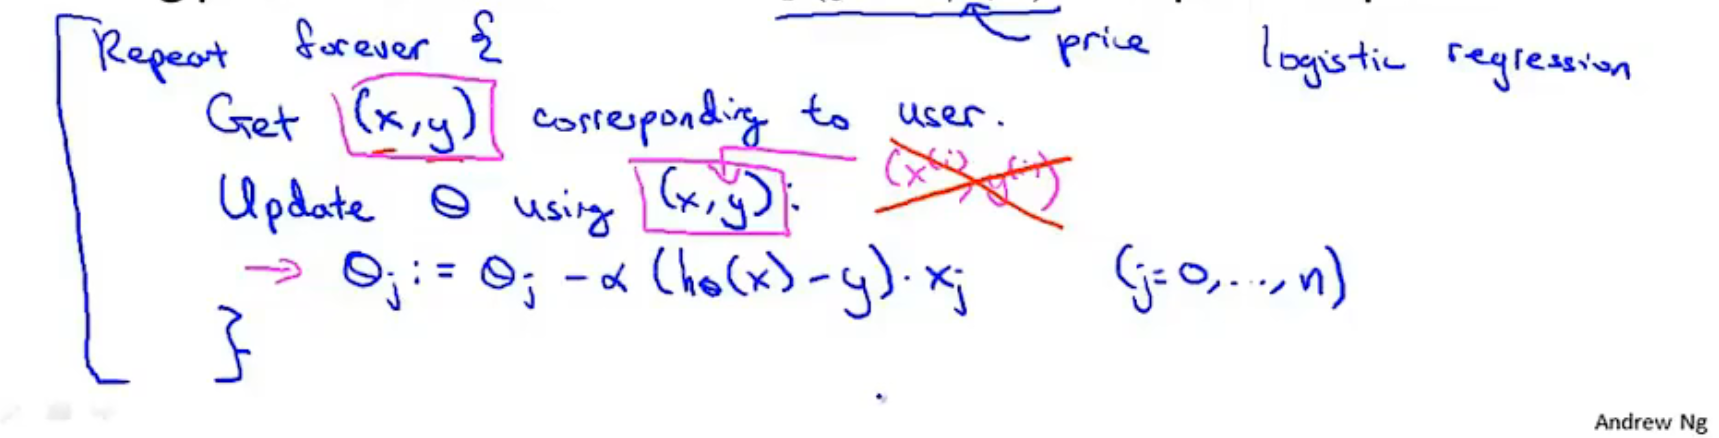 price logistic regression
Repeat forever {
Get (x,y) corresponding to user.
Update θ using (x,y): (x^(i), y^(i))
→ θ_j := θ_j - α (h_θ(x) - y) · x_j (j=0,...,n)
}
Andrew Ng